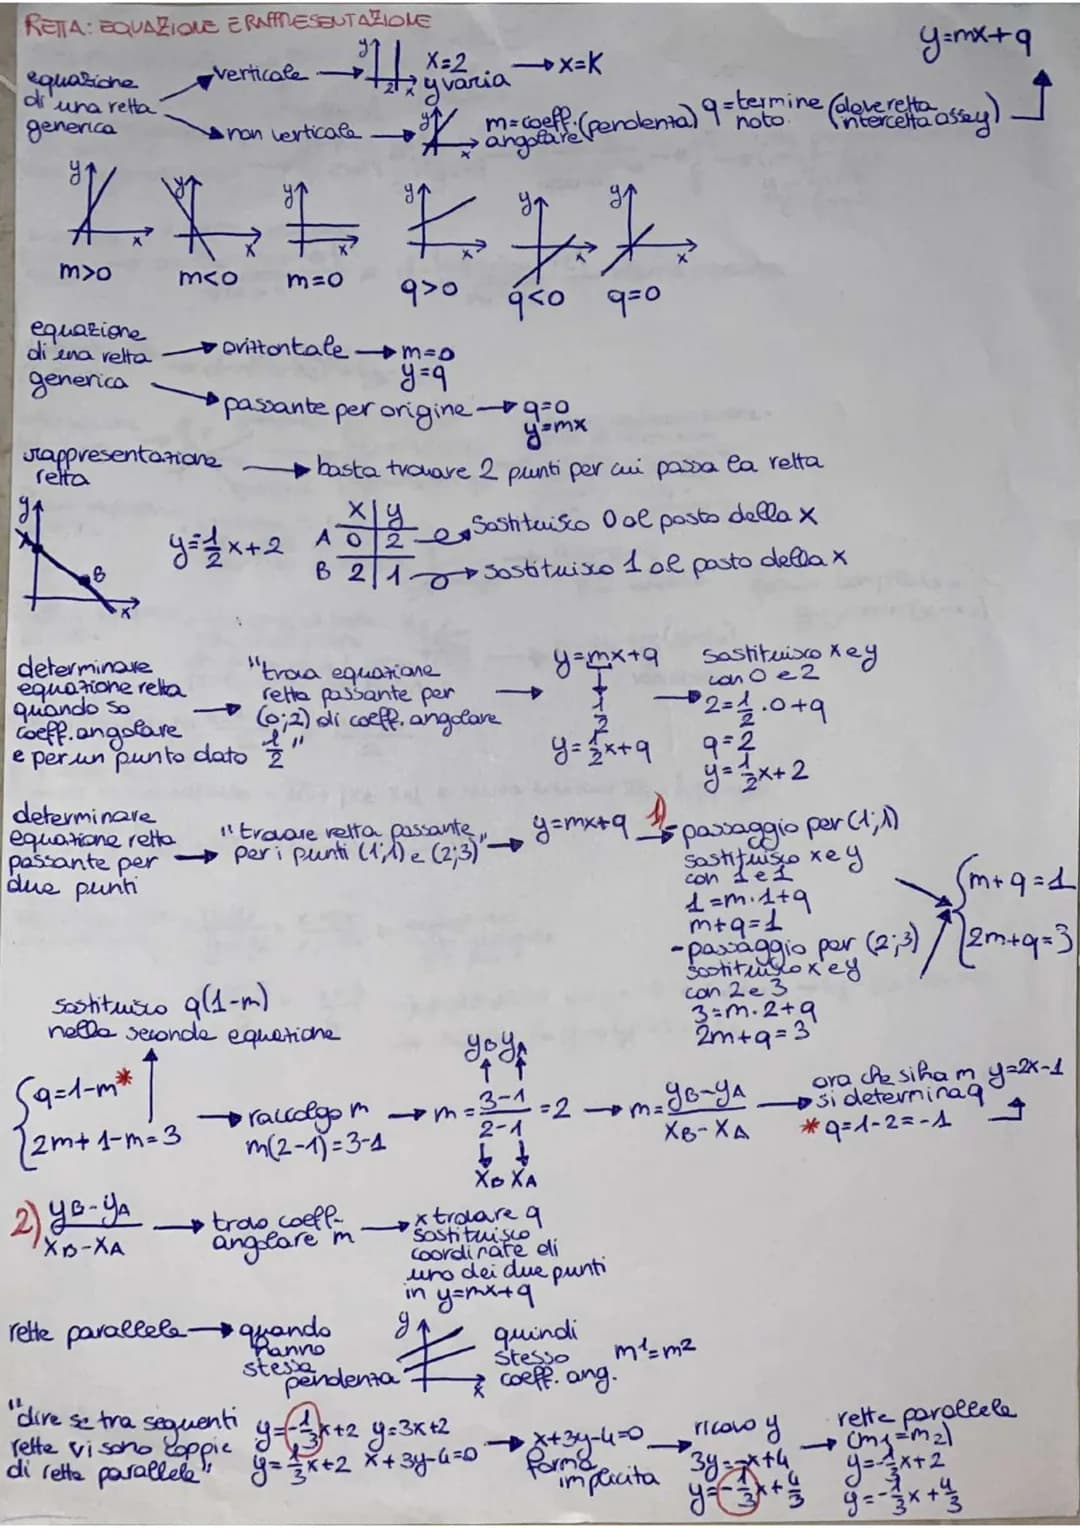 RETTA: EQUAZIONE E RAPPRESENTAZIONE
y=mx+q
equazione di una retta generica
verticale → x=2 y varia → x=K
non verticale → m=coeff. angolare (pendenza) q=termine noto (dove retta intercetta asse y)
m>0 m<0 m=0 q>0 q<0 q=0
equazione di una retta generica
orizzontale → m=0 y=q
passante per origine → q=0 y=mx
rappresentazione retta → basta trovare 2 punti per cui passa la retta
y=1/2x+2
x|y
A 0|2 → Sostituisco 0 al posto della x
B 2|1 → sostituisco 1 al posto della x
determinare equazione retta quando so coeff. angolare e per un punto dato
"trova equazione retta passante per (0;2) di coeff. angolare 1/2"
y=mx+q
1/2
y=1/2x+q
sostituisco x e y con 0 e 2
2=1/2·0+q
q=2
y=1/2x+2
determinare equazione retta passante per due punti
"trovare retta passante per i punti (1;1) e (2;3)" → y=mx+q
1) - passaggio per (1;1)
sostituisco x e y con 1 e 1
1=m·1+q
m+q=1
- passaggio per (2;3)
sostituisco x e y con 2 e 3
3=m·2+q
2m+q=3
{m+q=1
2m+q=3
sostituisco q(1-m) nella seconda equazione
{q=1-m*
2m+1-m=3
→ raccolgo m
m(2-1)=3-1
yB yA
→ m=3-1/2-1=2 → m=yB-yA/xB-xA
xB xA
ora che si ha m si determina q
* q=1-2=-1
y=2x-1
2) yB-yA/xB-xA → trovo coeff. angolare m → x trovare q sostituisco coordinate di uno dei due punti in y=mx+q
rette parallele → quando hanno stessa pendenza
y x
quindi stesso coeff. ang. m1=m2
"dire se tra seguenti rette vi sono coppie di rette parallele"
y=-1/3x+2 y=3x+2
y=1/3x+2 x+3y-4=0
→ x+3y-4=0 forma implicita
→ ricavo y
3y=-x+4
y=-1/3x+4/3
→ rette parallele (m1=m2)
y=-1/3x+2
y=-1/3x+4/3